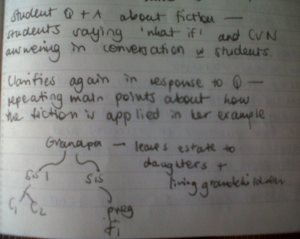 student Q + A about fiction —
students saying 'what if' and CVN
answering in conversation w students.
Clarifies again in response to Q —
repeating main points about how
the fiction is applied in her example
Grandpa — leaves estate to
daughters +
living grandchildren
Sis 1 Sis
C1 C2 preg
F1